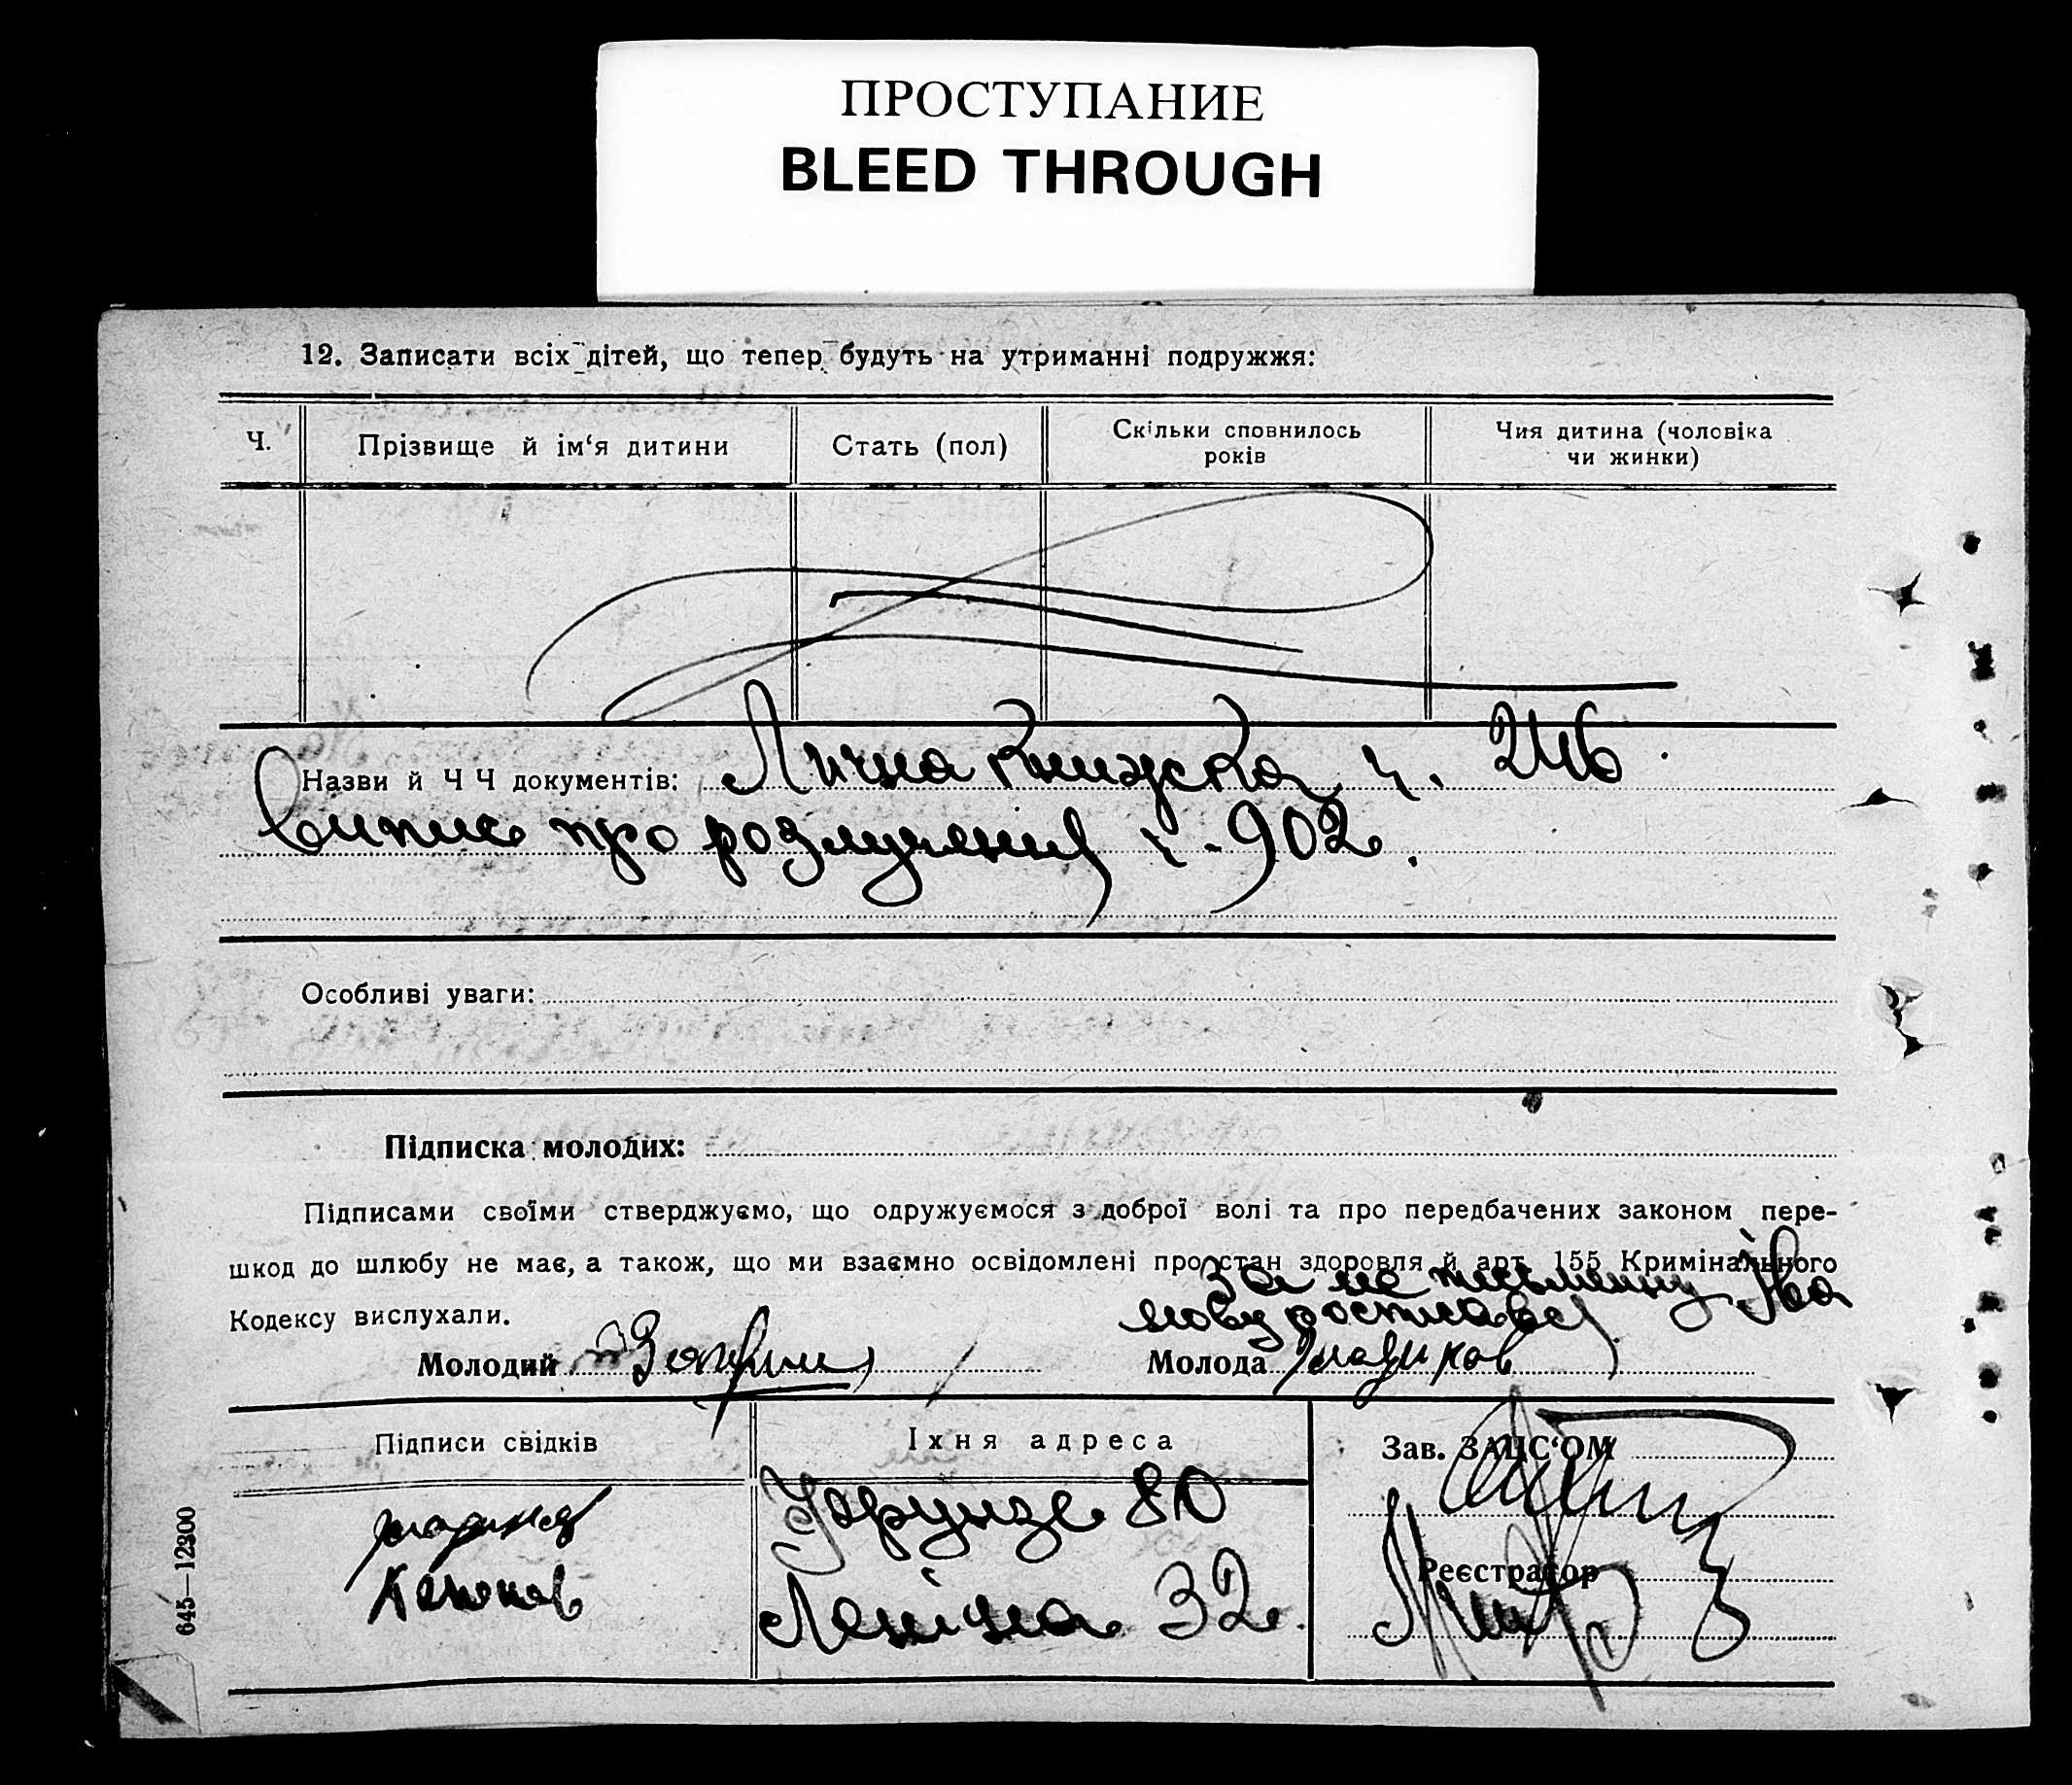 ПРОСТУПАНИЕ
BLEED THROUGH
12. Записати всіх дітей, що тепер будуть на утриманні подружжя:
Ч. Прізвище й ім‘я дитини Стать (пол) Скільки сповнилось років Чия дитина (чоловіка чи жинки)
Назви й Ч Ч документів: Лична книжка ч. 246
Випис про розлучення ч. 902.
Особливі уваги:
Підписка молодих:
Підписами своїми стверджуємо, що одружуємося з доброї волі та про передбачених законом пере-
шкод до шлюбу не має, а також, що ми взаємно освідомлені про стан здоровля й арт. 155 Кримінального
За не письменну Іва
нову росписався
Кодексу вислухали.
Молодий Молода
Підписи свідків Їхня адреса Зав. ЗАЦС‘ОМ
Фрунзе 80
Реєстратор
Леніна 32.
645—12300